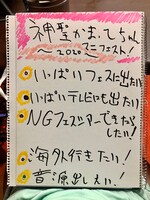 神聖かまってちゃん
〜2020マニフェスト!
いっぱいフェスに出たい
いっぱいテレビにも出たい
NGフェスツアーできたら
したい!
海外行きたい!
音源出しえい!